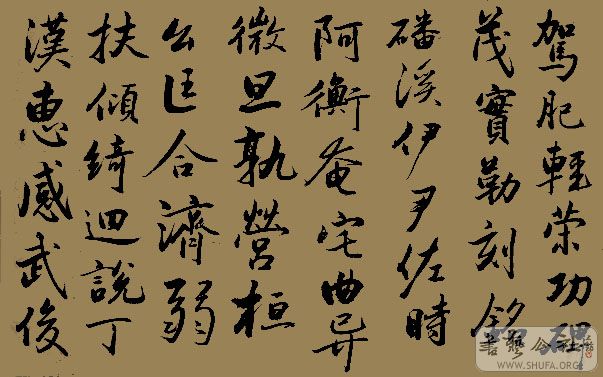 駕肥輕策功
茂實勒刻銘
磻溪伊尹佐時
阿衡奄宅曲阜
微旦孰營桓
公匡合濟弱
扶傾綺迴說丁
漢惠感武俊
WWW.SHUFA.ORG